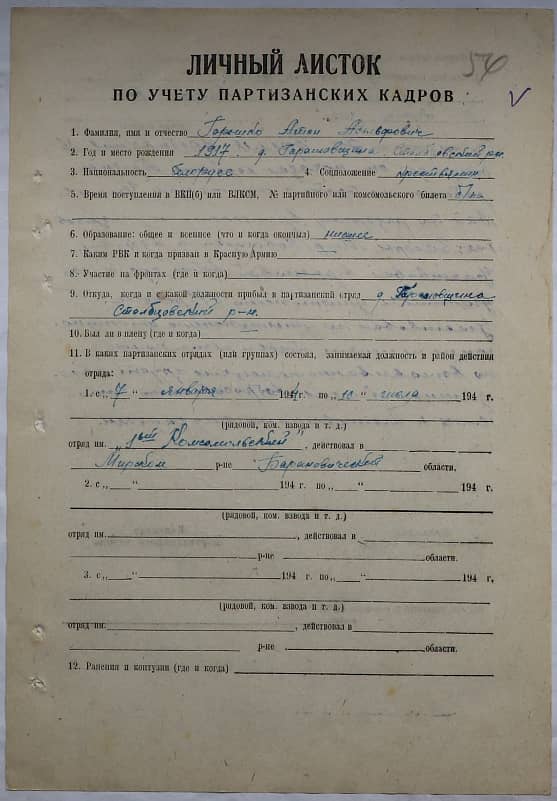 ЛИЧНЫЙ ЛИСТОК
54
ПО УЧЕТУ ПАРТИЗАНСКИХ КАДРОВ
1. Фамилия, имя и отчество Горошко Антон
2. Год и место рождения 1917 д.
3. Национальность белорусс 4. Соцположение
5. Время поступления в ВКП(б) или ВЛКСМ, № партийного или комсомольского билета б/п
6. Образование: общее и военнее (что и когда окончыл) низшее
7. Каким РВК и когда призван в Красную Армию
8. Участие на фронтах (где и когда)
9. Откуда, когда и с какой должности прибыл в партизанский отряд д.
Столбцовский р-н.
10. Был ли в плену (где и когда)
11. В каких партизанских отрядах (или группах) состоял, занимаемая должность и район действия
отряда:
1. с „ 7 “ января 1944 г. по „ 10 “ июля 194 г.
(рядовой, ком. взвода и т. д.)
отряд им. „1ый Комсомольский“, действовал в
Мирском р-не Барановической области,
2. с „ “ 194 г. по „ “ 194 г.
(рядовой, ком. взвода и т. д.)
отряд им. , действовал в
р-не области.
3. с „ “ 194 г. по „ “ 194 г,
(рядовой, ком. взвода и т. д.)
отряд им. , действовал в
р-не области.
12. Ранения и контузии (где и когда)